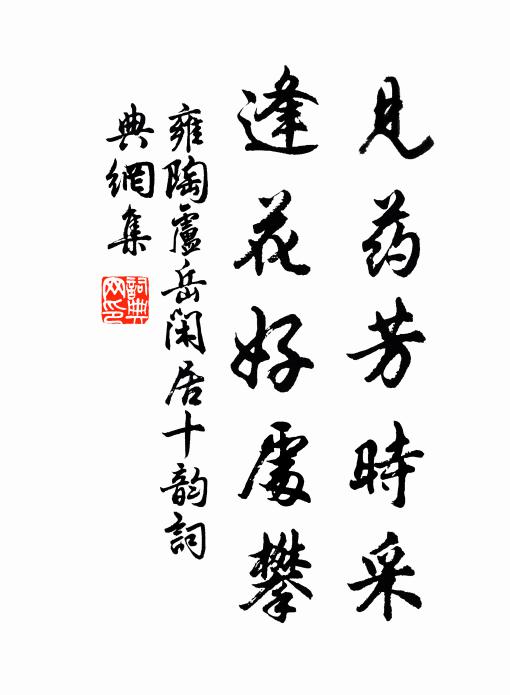 見药芳時采
逢花好處攀
雍陶廬岳閑居十韵詞
典網集
詞典
网印